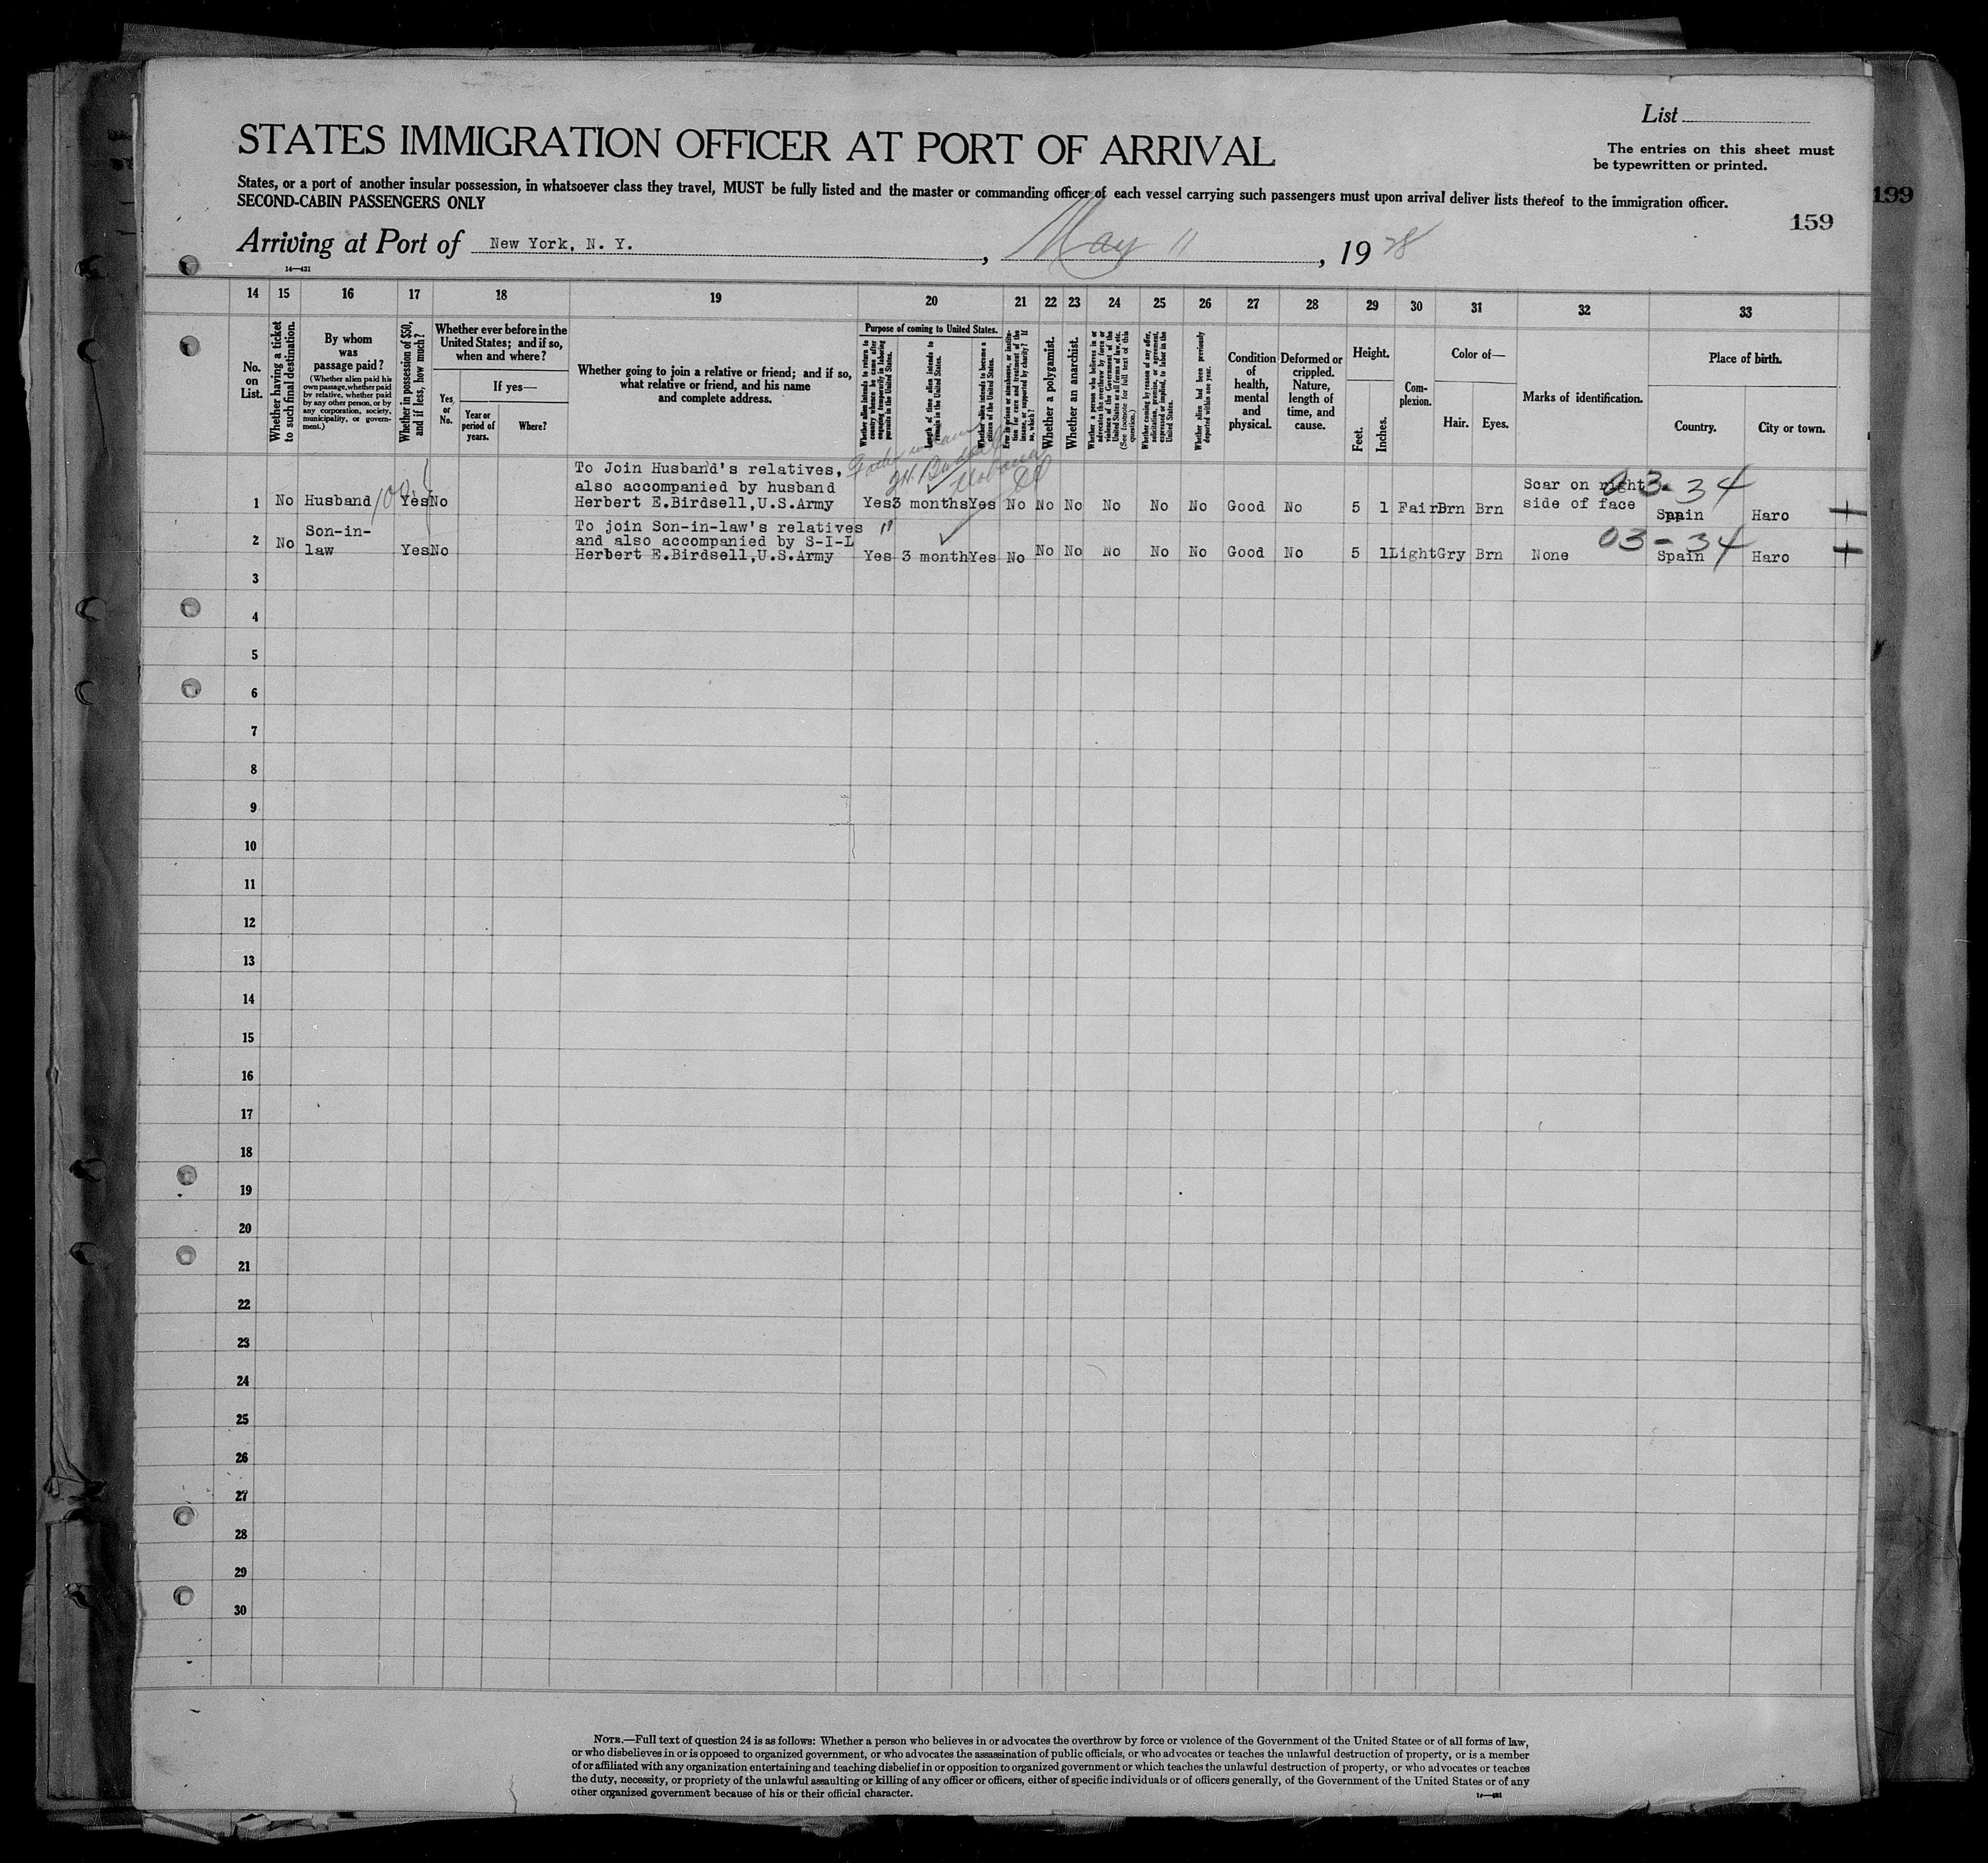 List
STATES IMMIGRATION OFFICER AT PORT OF ARRIVAL
The entries on this sheet must
be typewritten or printed.
States, or a port of another insular possession, in whatsoever class they travel, MUST be fully listed and the master or commanding officer of each vessel carrying such passengers must upon arrival deliver lists thereof to the immigration officer.
SECOND-CABIN PASSENGERS ONLY
199
159
Arriving at Port of New York, N. Y. , May 11 , 1928
14—431
14 15 16 17 18 19 20 21 22 23 24 25 26 27 28 29 30 31 32 33
No. on List.
Whether having a ticket to such final destination.
By whom was passage paid?
(Whether alien paid his own passage, whether paid by relative, whether paid by any other person, or by any corporation, society, municipality, or government.)
Whether in possession of $50, and if less, how much?
Whether ever before in the United States; and if so, when and where?
Yes or No.
If yes—
Year or period of years.
Where?
Whether going to join a relative or friend; and if so, what relative or friend, and his name and complete address.
Purpose of coming to United States.
Whether alien intends to return to country whence he came after engaging temporarily in laboring pursuits in the United States.
Length of time alien intends to remain in the United States.
Whether alien intends to become a citizen of the United States.
Ever in prison or almshouse, or institution for care and treatment of the insane, or supported by charity? If so, which?
Whether a polygamist.
Whether an anarchist.
Whether a person who believes in or advocates the overthrow by force or violence of the Government of the United States or all forms of law, etc. (See footnote for full text of this question.)
Whether coming by reason of any offer, solicitation, promise, or agreement, expressed or implied, to labor in the United States.
Whether alien had been previously deported within one year.
Condition of health, mental and physical.
Deformed or crippled. Nature, length of time, and cause.
Height.
Feet.
Inches.
Complexion.
Color of—
Hair.
Eyes.
Marks of identification.
Place of birth.
Country.
City or town.
Father in law
Urbana
Ill
To Join Husband's relatives,
also accompanied by husband
Scar on right 03-34
1 No Husband 100 Yes No Herbert E.Birdsell,U.S.Army Yes 3 months Yes No No No No No No Good No 5 1 Fair Brn Brn side of face Spain Haro +
Son-in- To join Son-in-law's relatives "
and also accompanied by S-I-L 03-34
2 No law Yes No Herbert E.Birdsell,U.S.Army Yes 3 month Yes No No No No No No Good No 5 1 Light Gry Brn None Spain Haro +
3
4
5
6
7
8
9
10
11
12
13
14
15
16
17
18
19
20
21
22
23
24
25
26
27
28
29
30
NOTE.—Full text of question 24 is as follows: Whether a person who believes in or advocates the overthrow by force or violence of the Government of the United States or of all forms of law,
or who disbelieves in or is opposed to organized government, or who advocates the assassination of public officials, or who advocates or teaches the unlawful destruction of property, or is a member
of or affiliated with any organization entertaining and teaching disbelief in or opposition to organized government or which teaches the unlawful destruction of property, or who advocates or teaches
the duty, necessity, or propriety of the unlawful assaulting or killing of any officer or officers, either of specific individuals or of officers generally, of the Government of the United States or of any
other organized government because of his or their official character.
14—431